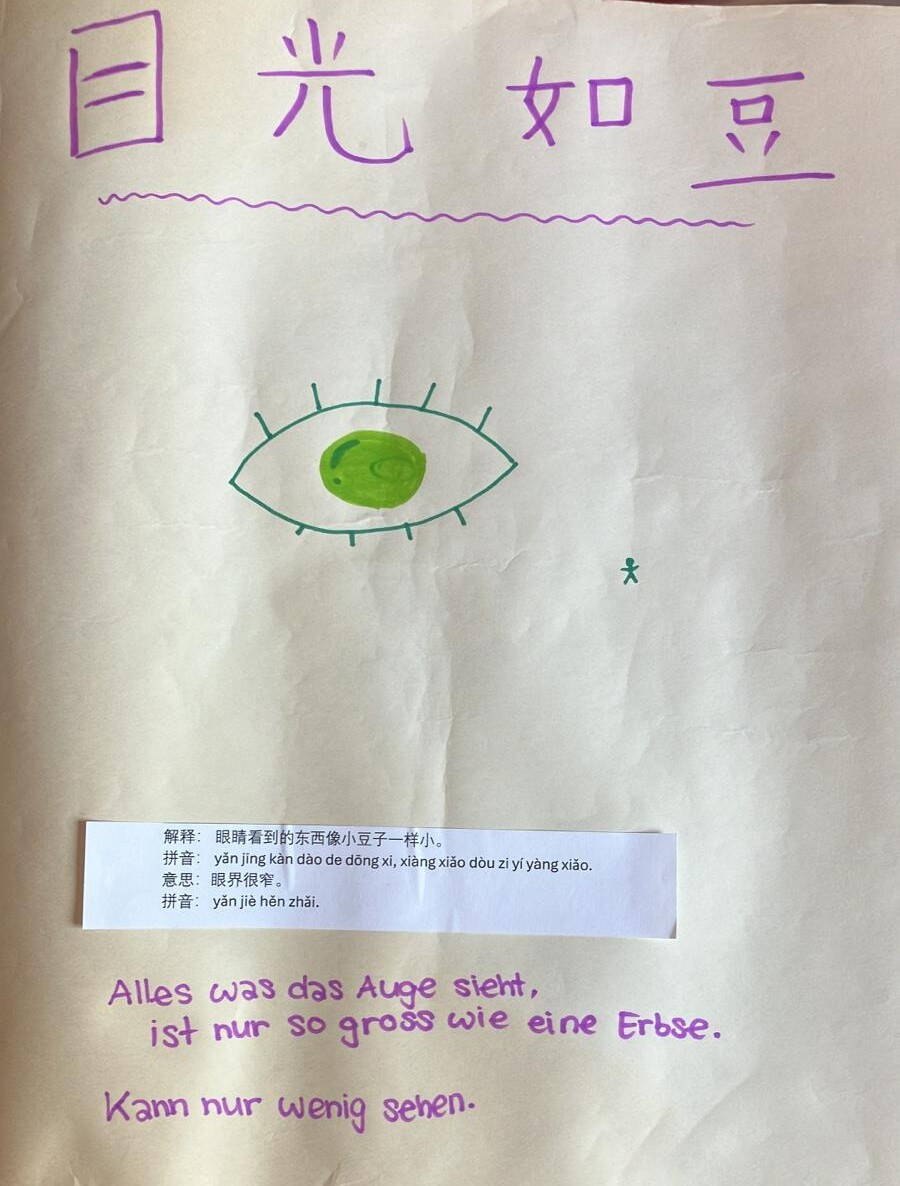 目光如豆
解释： 眼睛看到的东西像小豆子一样小。
拼音： yǎn jīng kàn dào de dōng xi, xiàng xiǎo dòu zi yí yàng xiǎo.
意思： 眼界很窄。
拼音： yǎn jiè hěn zhǎi.
Alles was das Auge sieht,
ist nur so gross wie eine Erbse.
Kann nur wenig sehen.